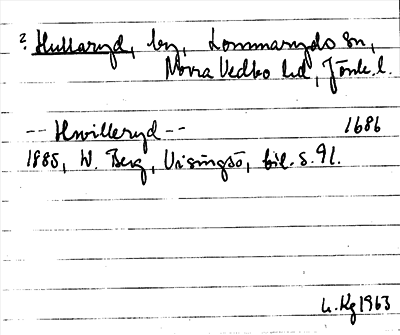 ? Hullaryd, by, Lommaryds sn,
Norra Vedbo hd, Jönk. l.
-- Hwilleryd -- 1686
1885, W. Berg, Visingsö, bil. s. 91.
L. Kg 1963